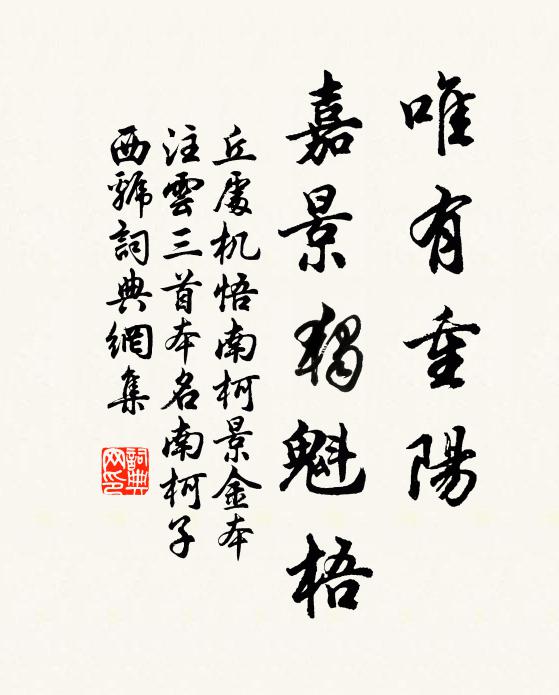 唯有重陽
嘉景獨魁梧
丘處机悟南柯景金本
注雲三首本名南柯子
西號詞典網集
詞典网印